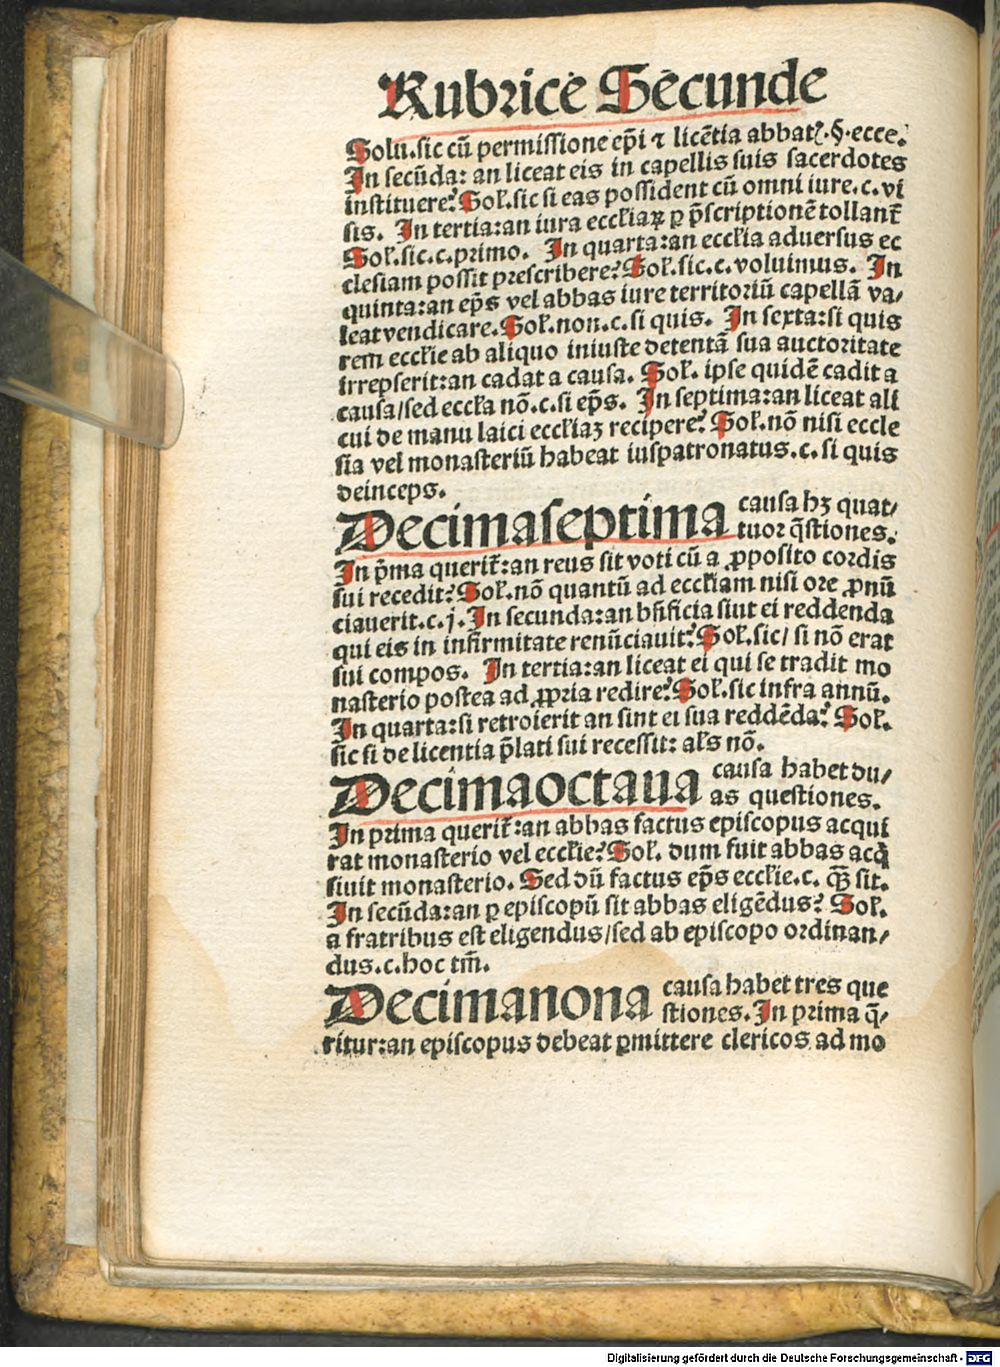 Rubrice Secunde
Solu.sic cū permissione ep̄i ⁊ licētia abbatꝭ.§.ecce.
In secūda: an liceat eis in capellis suis sacerdotes
instituere? Sol̄.sic si eas possident cū omni iure.c.vi
sis. In tertia:an iura eccl̄iaꝝ ꝑ p̄scriptionē tollant̄
Sol̄.sic.c.primo. In quarta:an eccl̄ia aduersus ec
clesiam possit prescribere? Sol̄.sic.c.voluimus. In
quinta:an ep̄s vel abbas iure territoriū capellā va/
leat vendicare. Sol̄.non.c.si quis. In sexta:si quis
rem eccl̄ie ab aliquo iniuste detentā sua auctoritate
irrepserit:an cadat a causa. Sol̄. ipse quidē cadit a
causa/sed eccl̄a nō.c.si ep̄s. In septima:an liceat ali
cui de manu laici eccl̄iaꝫ recipere? Sol̄.nō nisi eccle
sia vel monasteriū habeat iuspatronatus.c.si quis
deinceps.
Decimaseptima causa hꝫ quat/
tuor q̄stiones.
In p̄ma querit̄:an reus sit voti cū a ꝓposito cordis
sui recedit? Sol̄.nō quantū ad eccl̄iam nisi ore ꝓnū
ciauerit.c.j. In secunda:an bn̄ficia siut ei reddenda
qui eis in infirmitate renūciauit? Sol̄.sic/ si nō erat
sui compos. In tertia:an liceat ei qui se tradit mo
nasterio postea ad ꝓpria redire? Sol̄.sic infra annū.
In quarta:si retroierit an sint ei sua reddēda? Sol̄.
sic si de licentia p̄lati sui recessit: al̄s nō.
Decimaoctaua causa habet du/
as questiones.
In prima querit̄:an abbas factus episcopus acqui
rat monasterio vel eccl̄ie? Sol̄. dum fuit abbas acq̄
siuit monasterio. Sed dū factus ep̄s eccl̄ie.c. qꝫ sit.
In secūda:an ꝑ episcopū sit abbas eligēdus? Sol̄.
a fratribus est eligendus/sed ab episcopo ordinan/
dus.c.hoc tm̄.
Decimanona causa habet tres que
stiones. In prima q̄/
ritur:an episcopus debeat ꝑmittere clericos ad mo
Digitalisierung gefördert durch die Deutsche Forschungsgemeinschaft - DFG